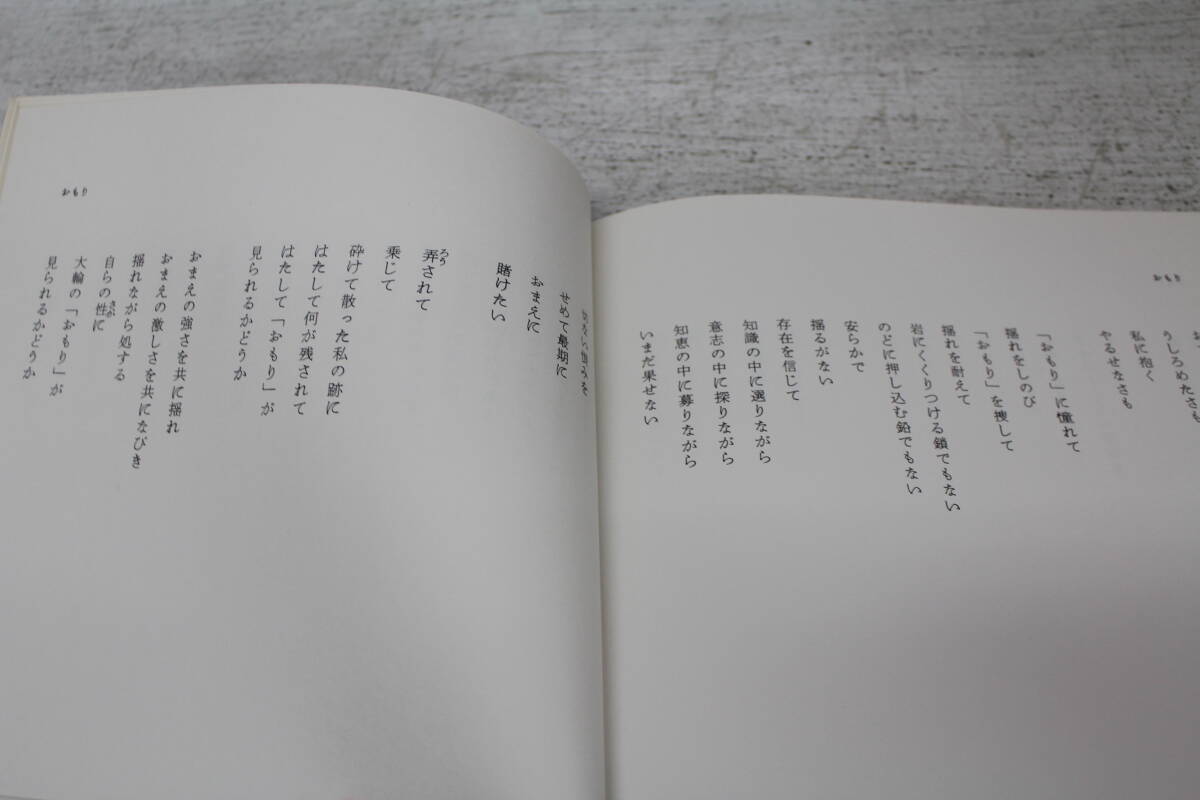 おもり
うしろめたさも
私に抱く
やるせなさも
「おもり」に憧れて
揺れをしのび
「おもり」を捜して
揺れを耐えて
岩にくくりつける鎖でもない
のどに押し込む鉛でもない
安らかで
揺るがない
存在を信じて
知識の中に選りながら
意志の中に探りながら
知恵の中に募りながら
いまだ果せない
せめて最期に
おまえに
賭けたい
弄されて
ろう
乗じて
砕けて散った私の跡に
はたして何が残されて
はたして「おもり」が
見られるかどうか
おまえの強さを共に揺れ
おまえの激しさを共になびき
揺れながら処する
自らの性に
さが
大輪の「おもり」が
見られるかどうか
おもり